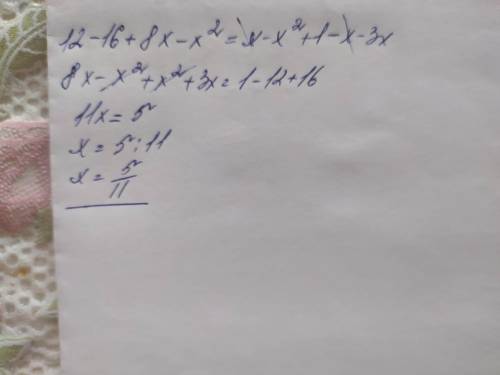 12-16+8x-x²=x-x²+1-x-3x
8x-x²+x²+3x=1-12+16
11x=5
x=5:11
x=5/11